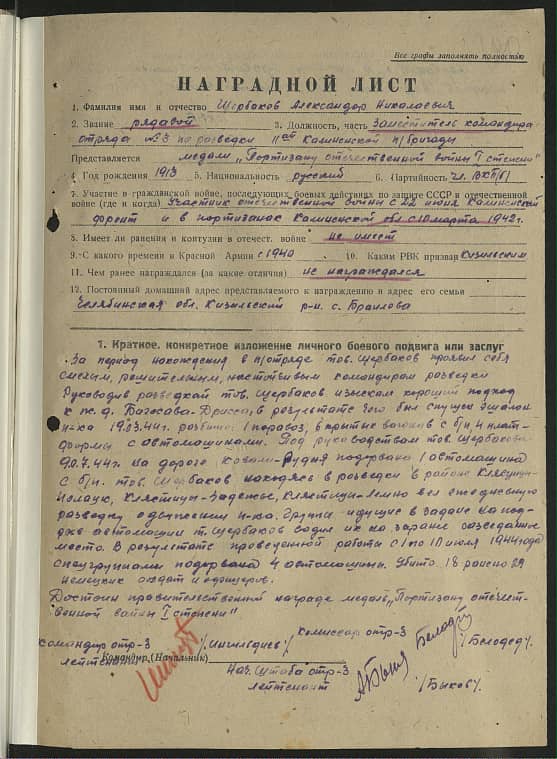 Все графы заполнять полностью
НАГРАДНОЙ ЛИСТ
1. Фамилия имя и отчество Щербаков Александр Николаевич
2. Звание рядовой 3. Должность, часть Заместитель командира
отряда №3 по разведки 11ой Калининской п/бригады
Представляется медали „Партизану отечественной войны I степени"
4. Год рождения 1913 5. Национальность русский 6. Партийность чл. ВКП/б/
7. Участие в гражданской войне, последующих боевых действиях по защите СССР и отечественной
войне (где и когда) Участник отечественной войны с 22 июня Калининский
фронт и в партизанах Калининской обл с 10 марта 1942г.
8. Имеет ли ранения и контузии в отечест. войне не имеет
9. С какого времени в Красной Армии с 1940 10. Каким РВК призван Кизильским
11. Чем ранее награждался (за какие отличия) не награждался
12. Постоянный домашний адрес представляемого к награждению и адрес его семьи
Челябинская обл. Кизильский р-н с. Браилова
1. Краткое, конкретное изложение личного боевого подвига или заслуг
За период нахождения в п/отряде тов. Щербаков проявил себя
смелым, решительным, настойчивым командиром разведки
Руководив разведкой тов. Щербаков изыскал хороший подход
к ж.д. Дрисса, в результате чего был спущен эшалон
п-ка 19.03.44г. разбито: 1 паровоз, крытые вагонов с б/п, 4 плат-
формы с автомашинами. Под руководством тов. Щербакова
9.0.7.44г. на дороге подорвана 1 автомашина
с б/п. тов. Щербаков находясь в разведки в районе Клястицы-
Клястицы-Заделье, Клястицы- вел ежедневную
разведку п-ка. Группы идущие в задание на под-
рыв автомашин т. Щербаков водил их на заранее разведанное
место. В результате проведенной работы с 1 по 10 июля 1944года
спецгруппами подорвана 4 автомашины. Убито 18 ранено 29
немецких солдат и офицеров.
Достоин правительственной награде медаль „Партизану отечест-
венной войны I степени"
Командир отр-3
лейтенант
Командир (Начальник)
Комиссар отр-3
/Белодед/
Нач. Штаба отр-3
лейтенант
/Быков/